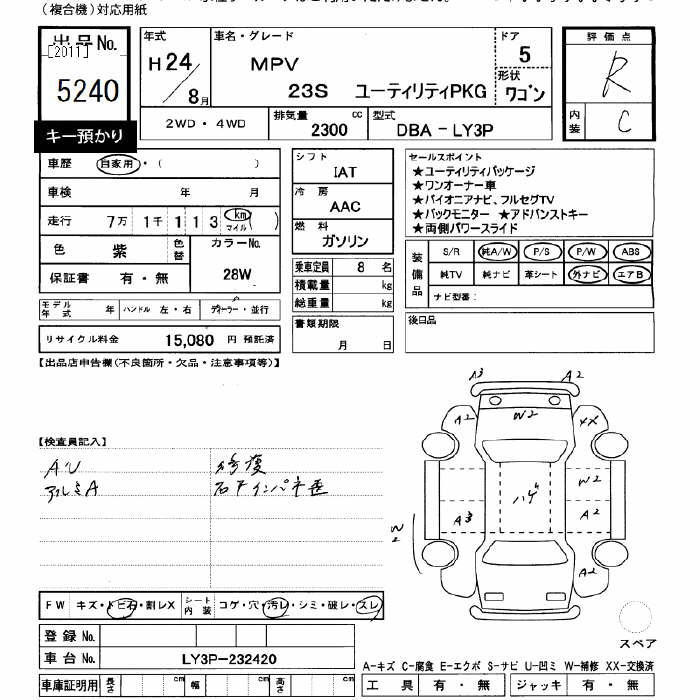 (複合機)対応用紙
出品No.
[2011]
5240
キー預かり
年式
H24/8月
車名・グレード
MPV
23S ユーティリティPKG
ドア
5
形状
ワゴン
評価点
R
内装
C
2WD・4WD
排気量
2300 cc
型式
DBA-LY3P
車歴 自家用・( )
車検 年 月
走行 7万 1千 1 1 3 km マイル ( )
色 紫 色替
カラーNo.
28W
保証書 有・無
シフト
IAT
冷房
AAC
燃料
ガソリン
乗車定員 8 名
積載量 kg
総重量 kg
セールスポイント
★ユーティリティパッケージ
★ワンオーナー車
★パイオニアナビ、フルセグTV
★バックモニター ★アドバンストキー
★両側パワースライド
装備品
S/R 純A/W P/S P/W ABS
純TV 純ナビ 革シート 外ナビ エアB
ナビ型番:
モデル年式 年 ハンドル 左・右 ディーラー・並行
リサイクル料金 15,080 円 預託済
書類期限
月 日
後日品
【出品店申告欄(不良箇所・欠品・注意事項等)】
A3 A2
W2
A2 XX
【検査員記入】
AU
アルミA
修復
右下インパネ歪
ハゲ
W2
A3 A2
W2
A2
FW キズ・トビ石・割レX シート内装 コゲ・穴・汚レ・シミ・破レ・スレ
登録No.
車台No. LY3P-232420
車庫証明用 長さ cm 幅 cm 高さ cm
スペア
A-キズ C-腐食 E-エクボ S-サビ U-凹ミ W-補修 XX-交換済
工具 有・無 ジャッキ 有・無